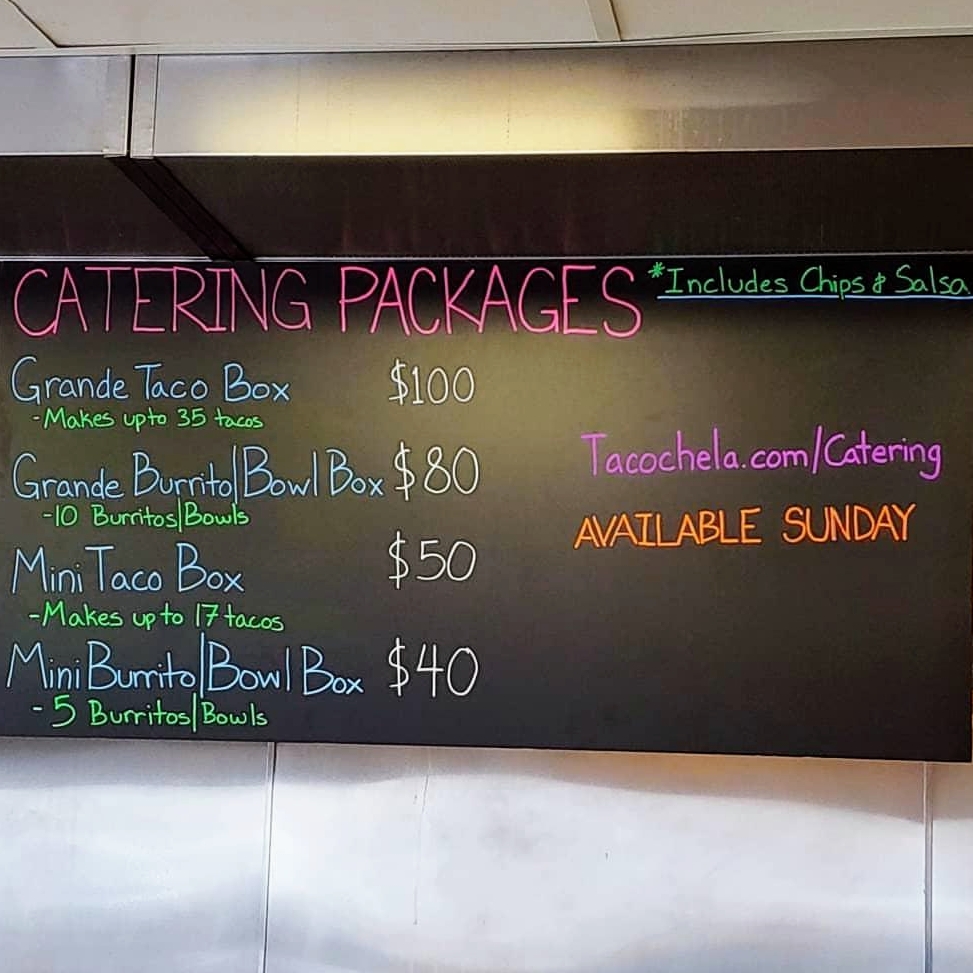 CATERING PACKAGES *Includes Chips & Salsa
Grande Taco Box $100
-Makes upto 35 tacos
Grande Burrito|Bowl Box $80
-10 Burritos|Bowls
Mini Taco Box $50
-Makes up to 17 tacos
Mini Burrito|Bowl Box $40
- 5 Burritos|Bowls
Tacochela.com/Catering
AVAILABLE SUNDAY